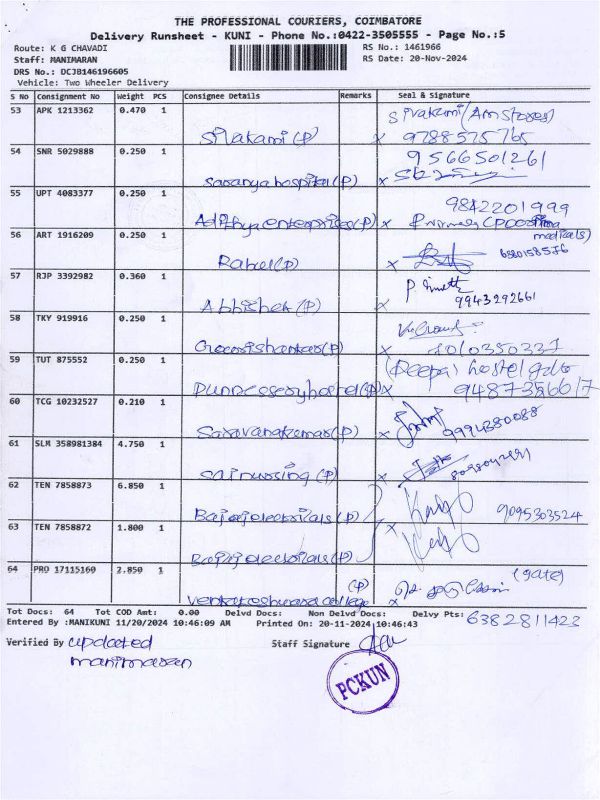 THE PROFESSIONAL COURIERS, COIMBATORE
Delivery Runsheet - KUNI - Phone No.:0422-3505555 - Page No.:5
Route: K G CHAVADI
RS No.: 1461966
Staff: MANIMARAN
RS Date: 20-Nov-2024
DRS No.: DCJB146196605
Vehicle: Two Wheeler Delivery
S No Consignment No Weight PCS Consignee Details Remarks Seal & Signature
53 APK 1213362 0.470 1
Sivakami (P) x Sivakami (Am Stores)
9788575765
54 SNR 5029888 0.250 1
Saranya hospital (P) x 9566501261
55 UPT 4083377 0.250 1
Adithya enterprises (P) x 9842201999
medicals)
56 ART 1916209 0.250 1
Rahel (P) x
57 RJP 3392982 0.360 1
Abhishek (P) x
9943292661
58 TKY 919916 0.250 1
Gowrishankar (P) x
59 TUT 875552 0.250 1
(P) x (Deepa) hostel gate
60 TCG 10232527 0.210 1
Saravanakumar (P) x 9994380088
61 SLM 358981384 4.750 1
Sai nursing (P) x
62 TEN 7858873 6.850 1
Bajaj electricals (P) x 9095303524
63 TEN 7858872 1.800 1
Bajaj electricals (P)
64 PRO 17115160 2.850 1
Venkateshwara college (P) x (gate)
Tot Docs: 64 Tot COD Amt: 0.00 Delvd Docs: Non Delvd Docs: Delvy Pts: 6382811423
Entered By :MANIKUNI 11/20/2024 10:46:09 AM Printed On: 20-11-2024 10:46:43
Verified By updated
manimaran
Staff Signature
PCKUN